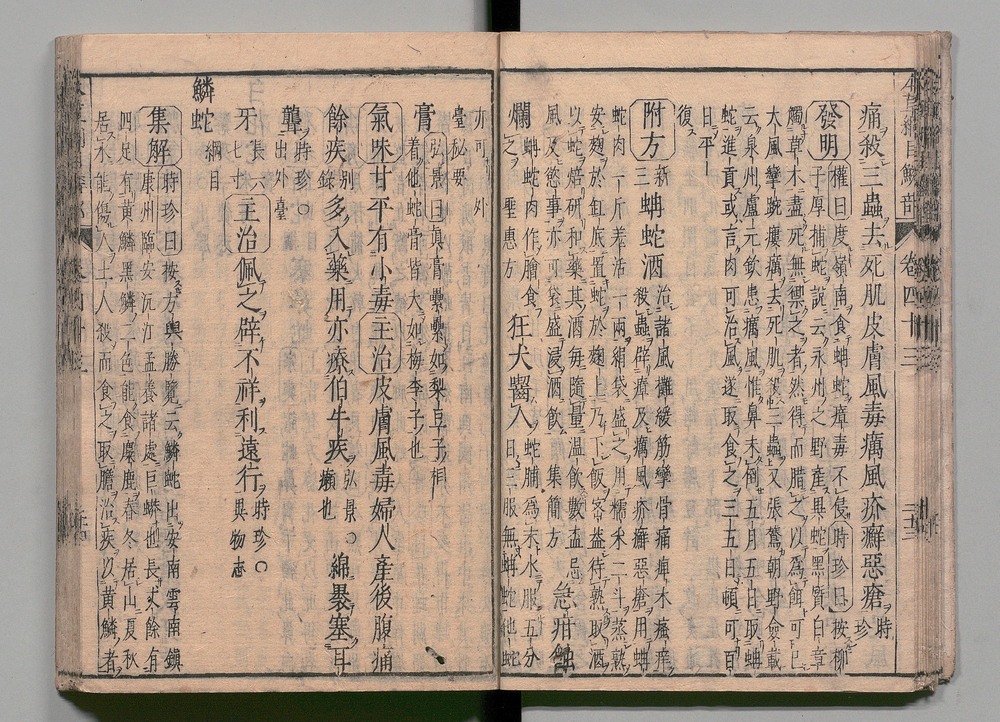 本草綱目鱗部 卷四十三
痛殺三蟲去死肌皮膚風毒癘風疥癬惡瘡時珍
發明權曰度嶺南食蚺蛇瘴毒不侵時珍曰按柳
子厚捕蛇說云永州之野產異蛇黑質白章
觸草木盡死無禦之者然得而腊之以爲餌可已
大風攣踠瘻癘去死肌殺三蟲又張鷟朝野僉載
云泉州盧元欽患癘風惟鼻未倒五月五日取蚺
蛇進貢或言肉可治風遂取食之三五日頓可百
日平復
附方新三蚺蛇酒治諸風攤緩筋攣骨痛痺木瘙痒
殺蟲辟瘴及癘風疥癬惡瘡用蚺
蛇肉一斤羌活一兩絹袋盛之用糯米二斗蒸熟
安麴於缸底置蛇於麴上乃下飯密蓋待熟取酒
以蛇焙研和藥其酒每隨量溫飲數盃忌
風及慾事亦可袋盛浸酒飲集簡方急疳蝕
爛蚺蛇肉作膾食之聖惠方狂犬齧人蛇脯爲末水服五分日三服無蚺蛇他蛇
亦可外臺秘要
膏弘景曰眞膏纍纍如梨豆子相着他蛇膏皆大如梅李子也
氣味甘平有小毒主治皮膚風毒婦人產後腹痛
餘疾別錄多入藥用亦療伯牛疾弘景○癩也綿裹塞耳
聾時珍○出外臺
牙長六七寸主治佩之辟不祥利遠行時珍○異物志
鱗蛇綱目
集解時珍曰按方輿勝覽云鱗蛇出安南雲南鎮
康州臨安沅江孟養諸處巨蟒也長丈餘有
四足有黃鱗黑鱗二色能食麋鹿春冬居山夏秋
居水能傷人土人殺而食之取膽治疾以黃鱗者